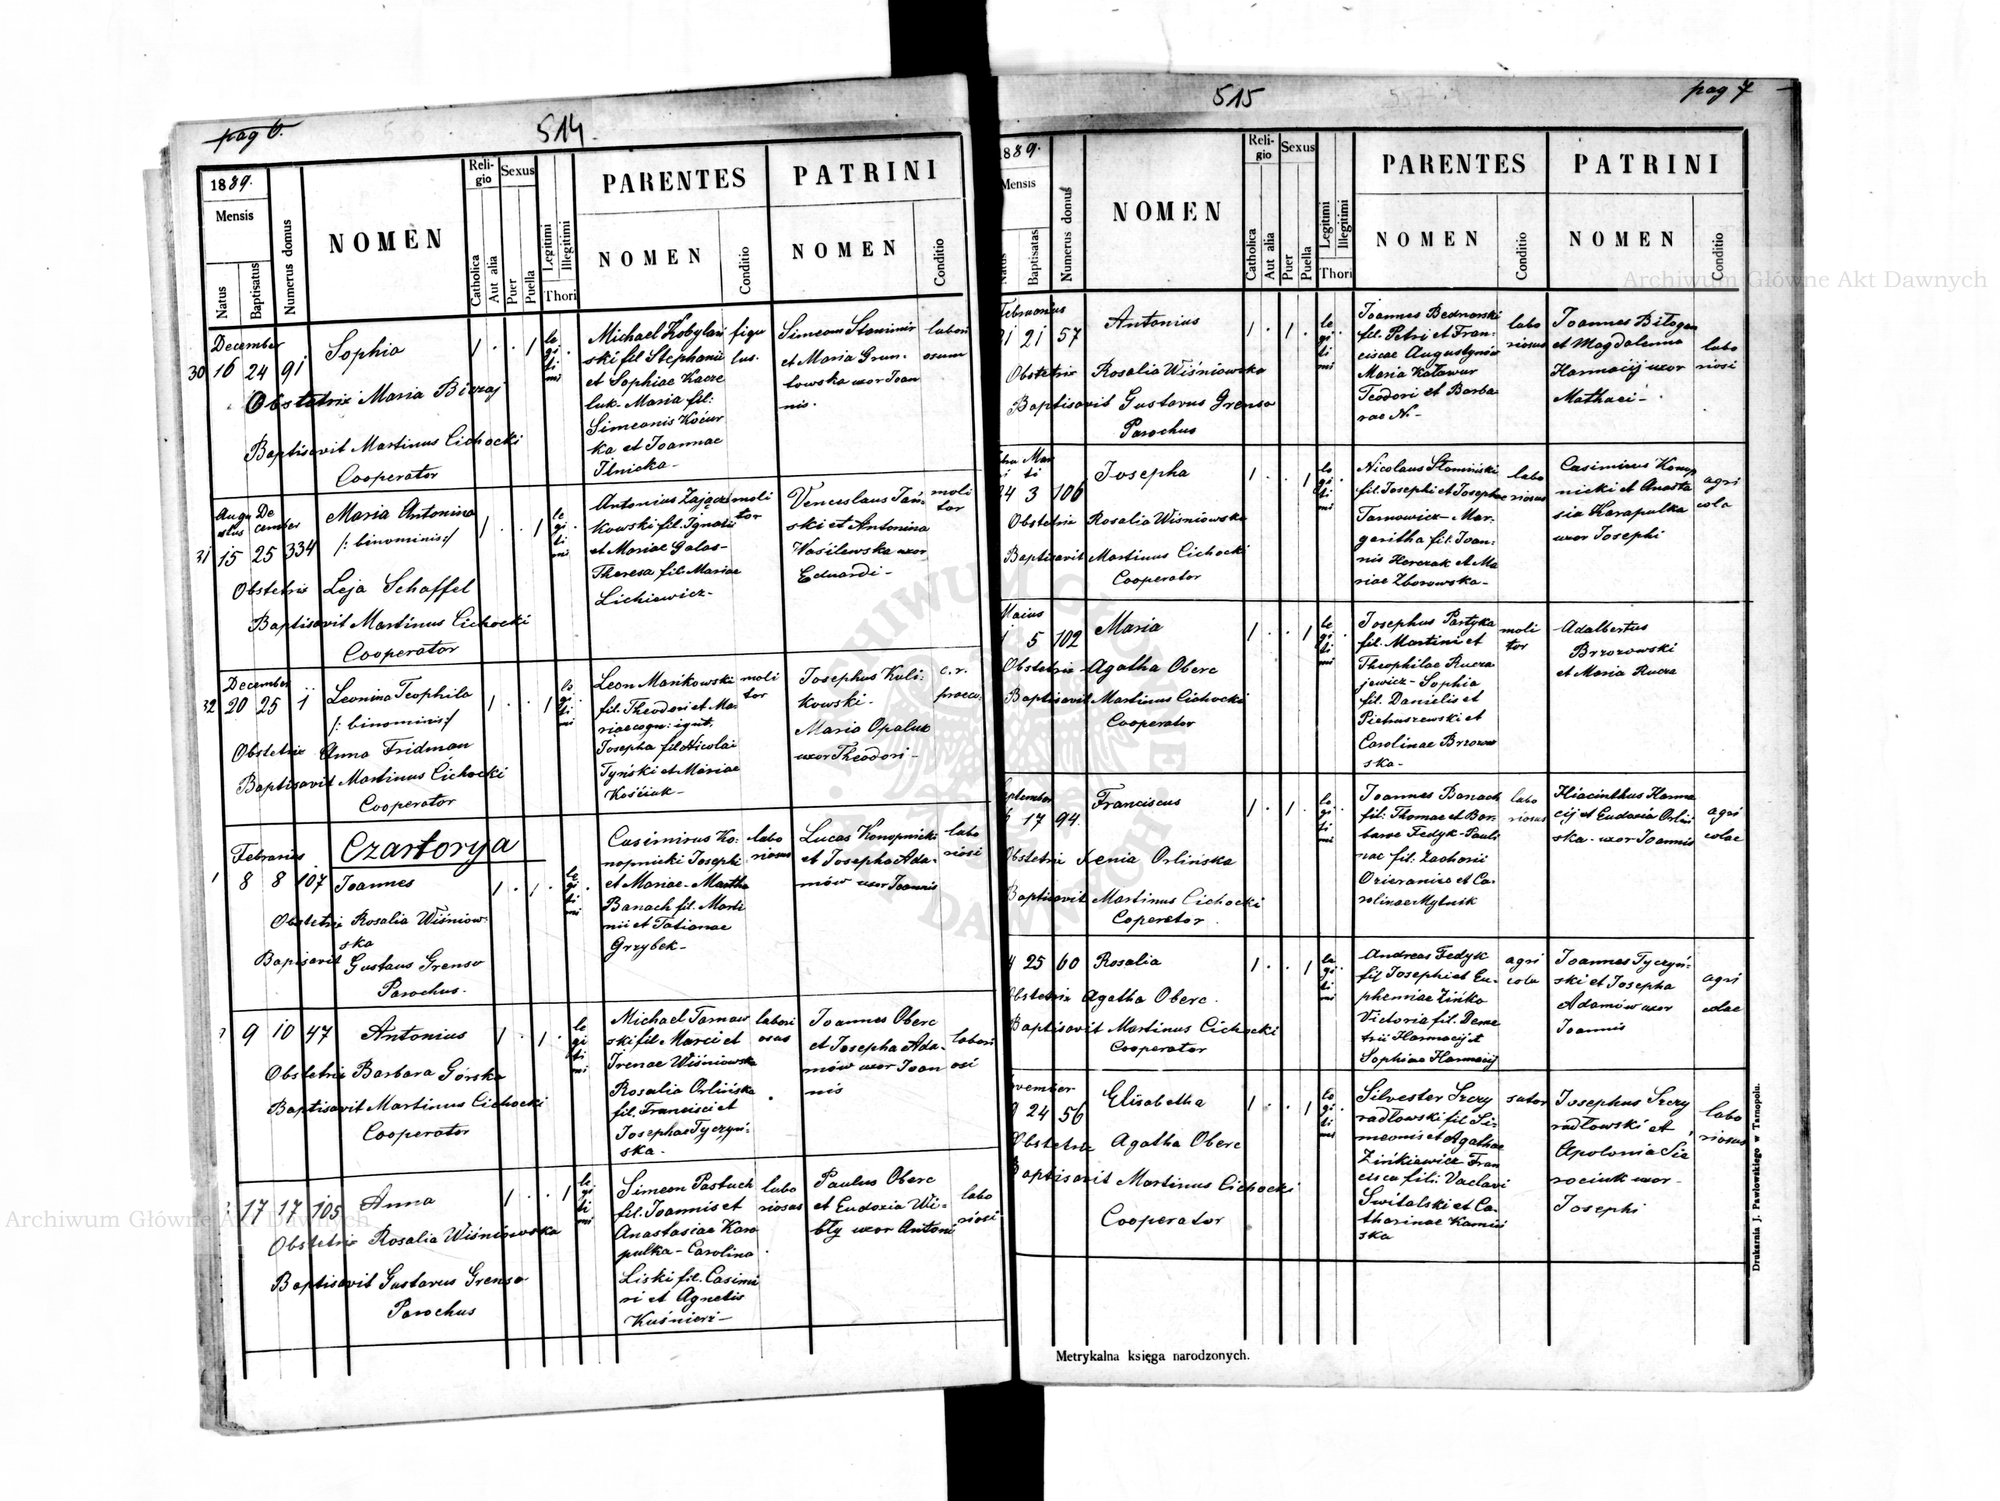 pag 6.
514.
1889.
Mensis
Natus
Baptisatus
Numerus domus
NOMEN
Religio
Catholica
Aut alia
Sexus
Puer
Puella
Legitimi
Illegitimi
Thori
PARENTES
NOMEN
Conditio
PATRINI
NOMEN
Conditio
December
30 16 24 91 Sophia 1 . . 1 legitimi
Obstetrix Maria Bieraj
Baptisavit Martinus Cichocki
Cooperator
Michael Kobylań
ski fil Stephani
et Sophiae Kacze
luk. Maria fil:
Simeonis Koćur
ka et Joannae
Ilnicka-
figu
lus.
Simeon
et Maria Grun-
towska uxor Joan
nis.
Augu
stus
De
cember
31 15 25 334 Maria Antonina
/: binominis:/ 1 . . 1 legitimi
Obstetrix Leja Schaffel
Baptisavit Martinus Cichocki
Cooperator
Antonius Zającz
kowski fil. Ignatii
et Mariae Galas-
Theresa fil. Mariae
Lichiewicz-
moli
tor
Venceslaus Jań-
ski et Antonina
Wasilewska uxor
Eduardi-
moli
tor
December
32 20 25 1 Leonina Teophila
/: binominis:/ 1 . . 1 legitimi
Obstetrix Anna Fridman
Baptisavit Martinus Cichocki
Cooperator
Leon Mańkowski
fil. Theodori et Ma-
riae cogn: ignt:
Josepha fil Nicolai
Tyński et Mariae
Kościuk-
moli
tor
Josephus Kuli-
kowski-
Maria Opaluk
uxor Theodori-
c. r.
Czartorya
Februarius
1 8 8 107 Joannes 1 . 1 . legitimi
Obstetrix Rosalia Wiśniow-
ska
Baptisavit Gustaus Grenso
Parochus.
Casimirus Ko-
nopnicki Josephi
et Mariae- Martha
Banach fil. Marti
nii et Tatianae
Grzybek-
labo
riosus
Lucas Konopnicki
et Josepha Ada-
mów uxor Joannis
labo
riosi
9 10 47 Antonius 1 . 1 . legitimi
Obstetrix Barbara Górska
Baptisavit Martinus Cichocki
Cooperator
Michael Tarnaw
ski fil. Marci et
Irenae Wiśniowska
Rosalia Orlińska
fil. Francisci et
Josephae Tyczyń-
ska.
labori
osus
Joannes Oberc
et Josepha Ada-
mów uxor Joan
nis
labori
osi
17 17 105 Anna 1 . . 1 legitimi
Obstetrix Rosalia Wiśniowska
Baptisavit Gustavus Grenso
Parochus
Simeon Pastuch
fil. Joannis et
Anastasiae Kara
pulka- Carolina
Liski fil. Casimi
ri et Agnetis
Kuśnierz-
labo
riosus
Paulus Oberc
et Eudoxia Wi-
bły uxor Antoni
labo
riosi
pag 7
515
1889.
Mensis
Natus
Baptisatas
Numerus domus
NOMEN
Religio
Catholica
Aut alia
Sexus
Puer
Puella
Legitimi
Illegitimi
Thori
PARENTES
NOMEN
Conditio
PATRINI
NOMEN
Conditio
Februarius
21 21 57 Antonius 1 . 1 . legitimi
Obstetrix Rosalia Wiśniowska
Baptisavit Gustavus Grenso
Parochus
Joannes Bednarski
fil. Petri et Fran-
ciscae Augustynów
Maria Kaławur
Teodori et Barba
rae N-
labo
riosus
Joannes Biłogan
et Magdalenna
Harmacij uxor
Mathaei-
labo
riosi
24 3 106 Josepha 1 . . 1 legitimi
Obstetrix Rosalia Wiśniowska
Baptisavit Martinus Cichocki
Cooperator
Nicolaus Słomiński
fil. Josephi et Josephae
Tarnowicz- Mar-
garitha fil. Joan-
nis Horczak et Ma
riae Zborowska-
labo
riosus
Casimirus Konop
nicki et Anasta
sia Karapulka
uxor Josephi
agri
cola
Maius
1 5 102 Maria 1 . . 1 legitimi
Obstetrix Agatha Oberc
Baptisavit Martinus Cichocki
Cooperator
Josephus Partyka
fil. Martini et
Theophilae Rucza
jewicz- Sophia
fil. Danielis et
Pietuszewski et
Carolinae Brzozow
ska-
moli
tor
Adalbertus
Brzozowski
et Maria Rucza
September
17 94. Franciscus 1 . 1 . legitimi
Obstetrix Xenia Orlińska
Baptisavit Martinus Cichocki
Coperator
Joannes Banach
fil: Thomae et Bar
barae Fedyk- Pauli
nae fil. Zacharii
Ozieranice et Ca-
rolinae Mytnik
labo
riosus
Hiacinthus Harma
cij et Eudoxia Orliń
ska- uxor Joannis
agri
colae
25 60 Rosalia 1 . . 1 legitimi
Obstetrix Agatha Oberc.
Baptisavit Martinus Cichocki
Cooperator
Andreas Fedyk
fil Josephi et Eu-
phemiae Zińko
Victoria fil. Deme
trii Harmacij et
Sophiae Harmacij
agri
cola
Joannes Tyczyń-
ski et Josepha
Adamów uxor
Joannis
agri
colae
November
24 56 Elisabetha 1 . . 1 legitimi
Obstetrix Agatha Oberc
Baptisavit Martinus Cichocki
Cooperator
Silvester Szczy
radłowski fil Si-
meonis et Agathae
Zińkiewicz Fran
cisca filii Vaclavi
Switalski et Ca-
tharinae Kamiń
ska
sutor
Josephus Szczy
radłowski et
Apolonia Sie
rociuk uxor-
Josephi
labo
riosus
Metrykalna księga narodzonych.
Drukarnia J. Pawłowskiego w Tarnopolu.
Archiwum Główne Akt Dawnych
Archiwum Główne Akt Dawnych
ARCHIWUM GŁÓWNE AKT DAWNYCH